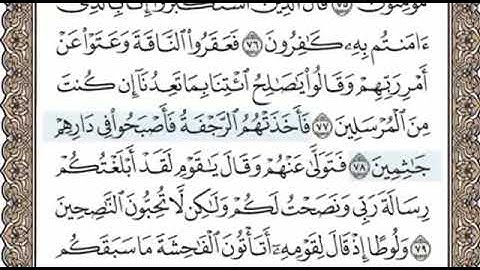 مُؤْمِنُونَ ٧٥ قَالَ ٱلَّذِينَ ٱسْتَكْبَرُوٓا۟ إِنَّا بِٱلَّذِىٓ
ءَامَنتُم بِهِۦ كَٰفِرُونَ ٧٦ فَعَقَرُوا۟ ٱلنَّاقَةَ وَعَتَوْا۟ عَنْ
أَمْرِ رَبِّهِمْ وَقَالُوا۟ يَٰصَٰلِحُ ٱئْتِنَا بِمَا تَعِدُنَآ إِن كُنتَ
مِنَ ٱلْمُرْسَلِينَ ٧٧ فَأَخَذَتْهُمُ ٱلرَّجْفَةُ فَأَصْبَحُوا۟ فِى دَارِهِمْ
جَٰثِمِينَ ٧٨ فَتَوَلَّىٰ عَنْهُمْ وَقَالَ يَٰقَوْمِ لَقَدْ أَبْلَغْتُكُمْ
رِسَالَةَ رَبِّى وَنَصَحْتُ لَكُمْ وَلَٰكِن لَّا تُحِبُّونَ ٱلنَّٰصِحِينَ
٧٩ وَلُوطًا إِذْ قَالَ لِقَوْمِهِۦٓ أَتَأْتُونَ ٱلْفَٰحِشَةَ مَا سَبَقَكُم